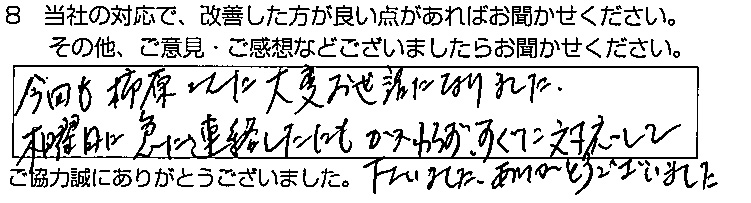 8 当社の対応で、改善した方が良い点があればお聞かせください。
その他、ご意見・ご感想などございましたらお聞かせください。
今回も柿原さんに大変お世話になりました。
木曜日に急に連絡したにもかかわらず、すぐに対応して
ご協力誠にありがとうございました。下さいました。ありがとうございました